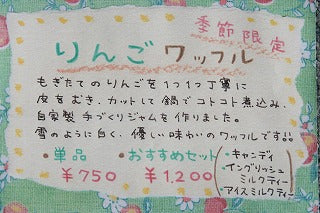 季節限定
りんごワッフル
もぎたてのりんごを1つ1つ丁寧に
皮をむき、カットして鍋でコトコト煮込み、
自家製 手づくりジャムを作りました。
雪のように白く、優しい味わいのワッフルです!!
・単品 ・おすすめセット
¥750 ¥1,200
・キャンディ
・イングリッシュ
ミルクティー
・アイスミルクティー